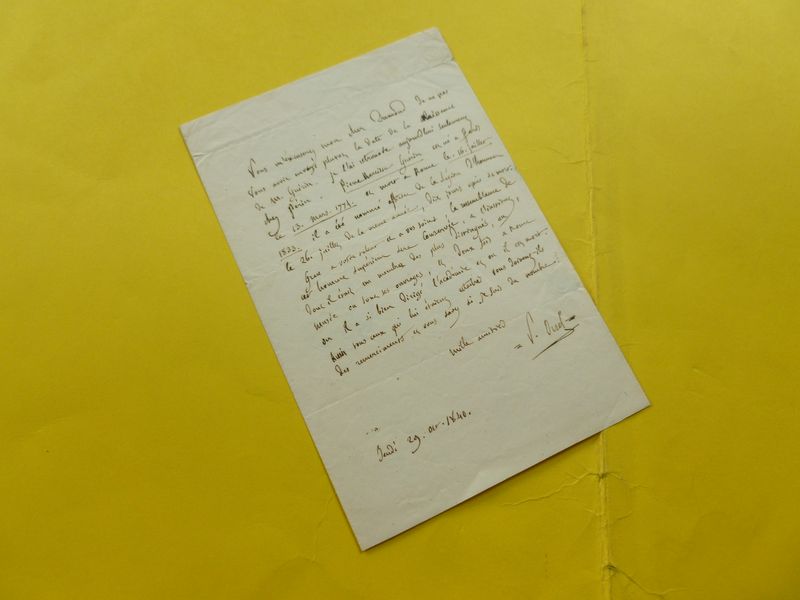 Vous m'excuserez mon cher Dumont De ne pas
vous avoir envoyé plutôt la date de la naissance
de Mr Guérin. je l'ai retrouvée aujourd'hui seulement
chez Périn. Pierre Narcisse Guérin est né a Paris
le 13. mars. 1774. et mort a Rome le 16. juillet
1833. il a été nommé officier de la Légion D'honneur
le 26. juillet de la même année, dix jours après sa mort.
Grace a votre talent et a vos soins la ressemblance de
cet homme supérieur sera conservée, a l'institut,
Dont il était un membre des plus distingués, au
musée où sont ses ouvrages, et deux fois a Rome
où il a si bien dirigé l'académie et où il est mort.
tous ceux qui lui étaient attachés vous doivent ils
des remerciements et vous savez si je suis du nombre!
mille amitiés
P.
Jeudi 29. oct. 1840.